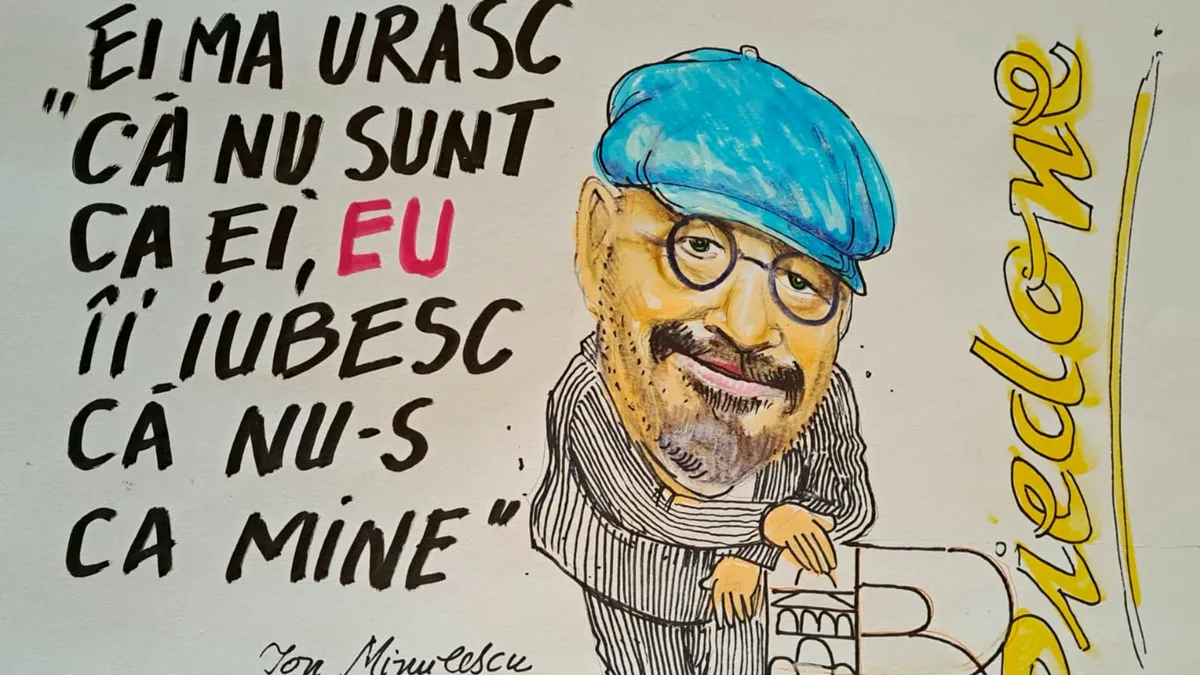 "EI MA URASC
CĂ NU SUNT
CA EI, EU
ÎI IUBESC
CĂ NU-S
CA MINE"
Ion Minulescu
Piedone